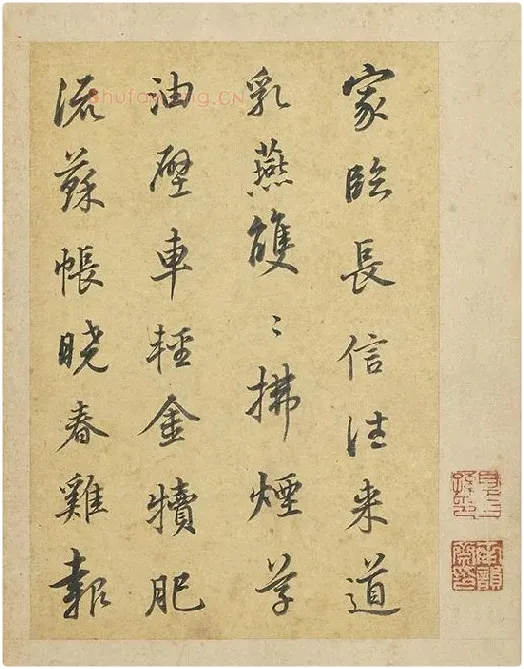 家臨長信往来道
乳燕雙〻拂煙草
油壁車輕金犢肥
流蘇帳曉春雞報
Shufawang.CN